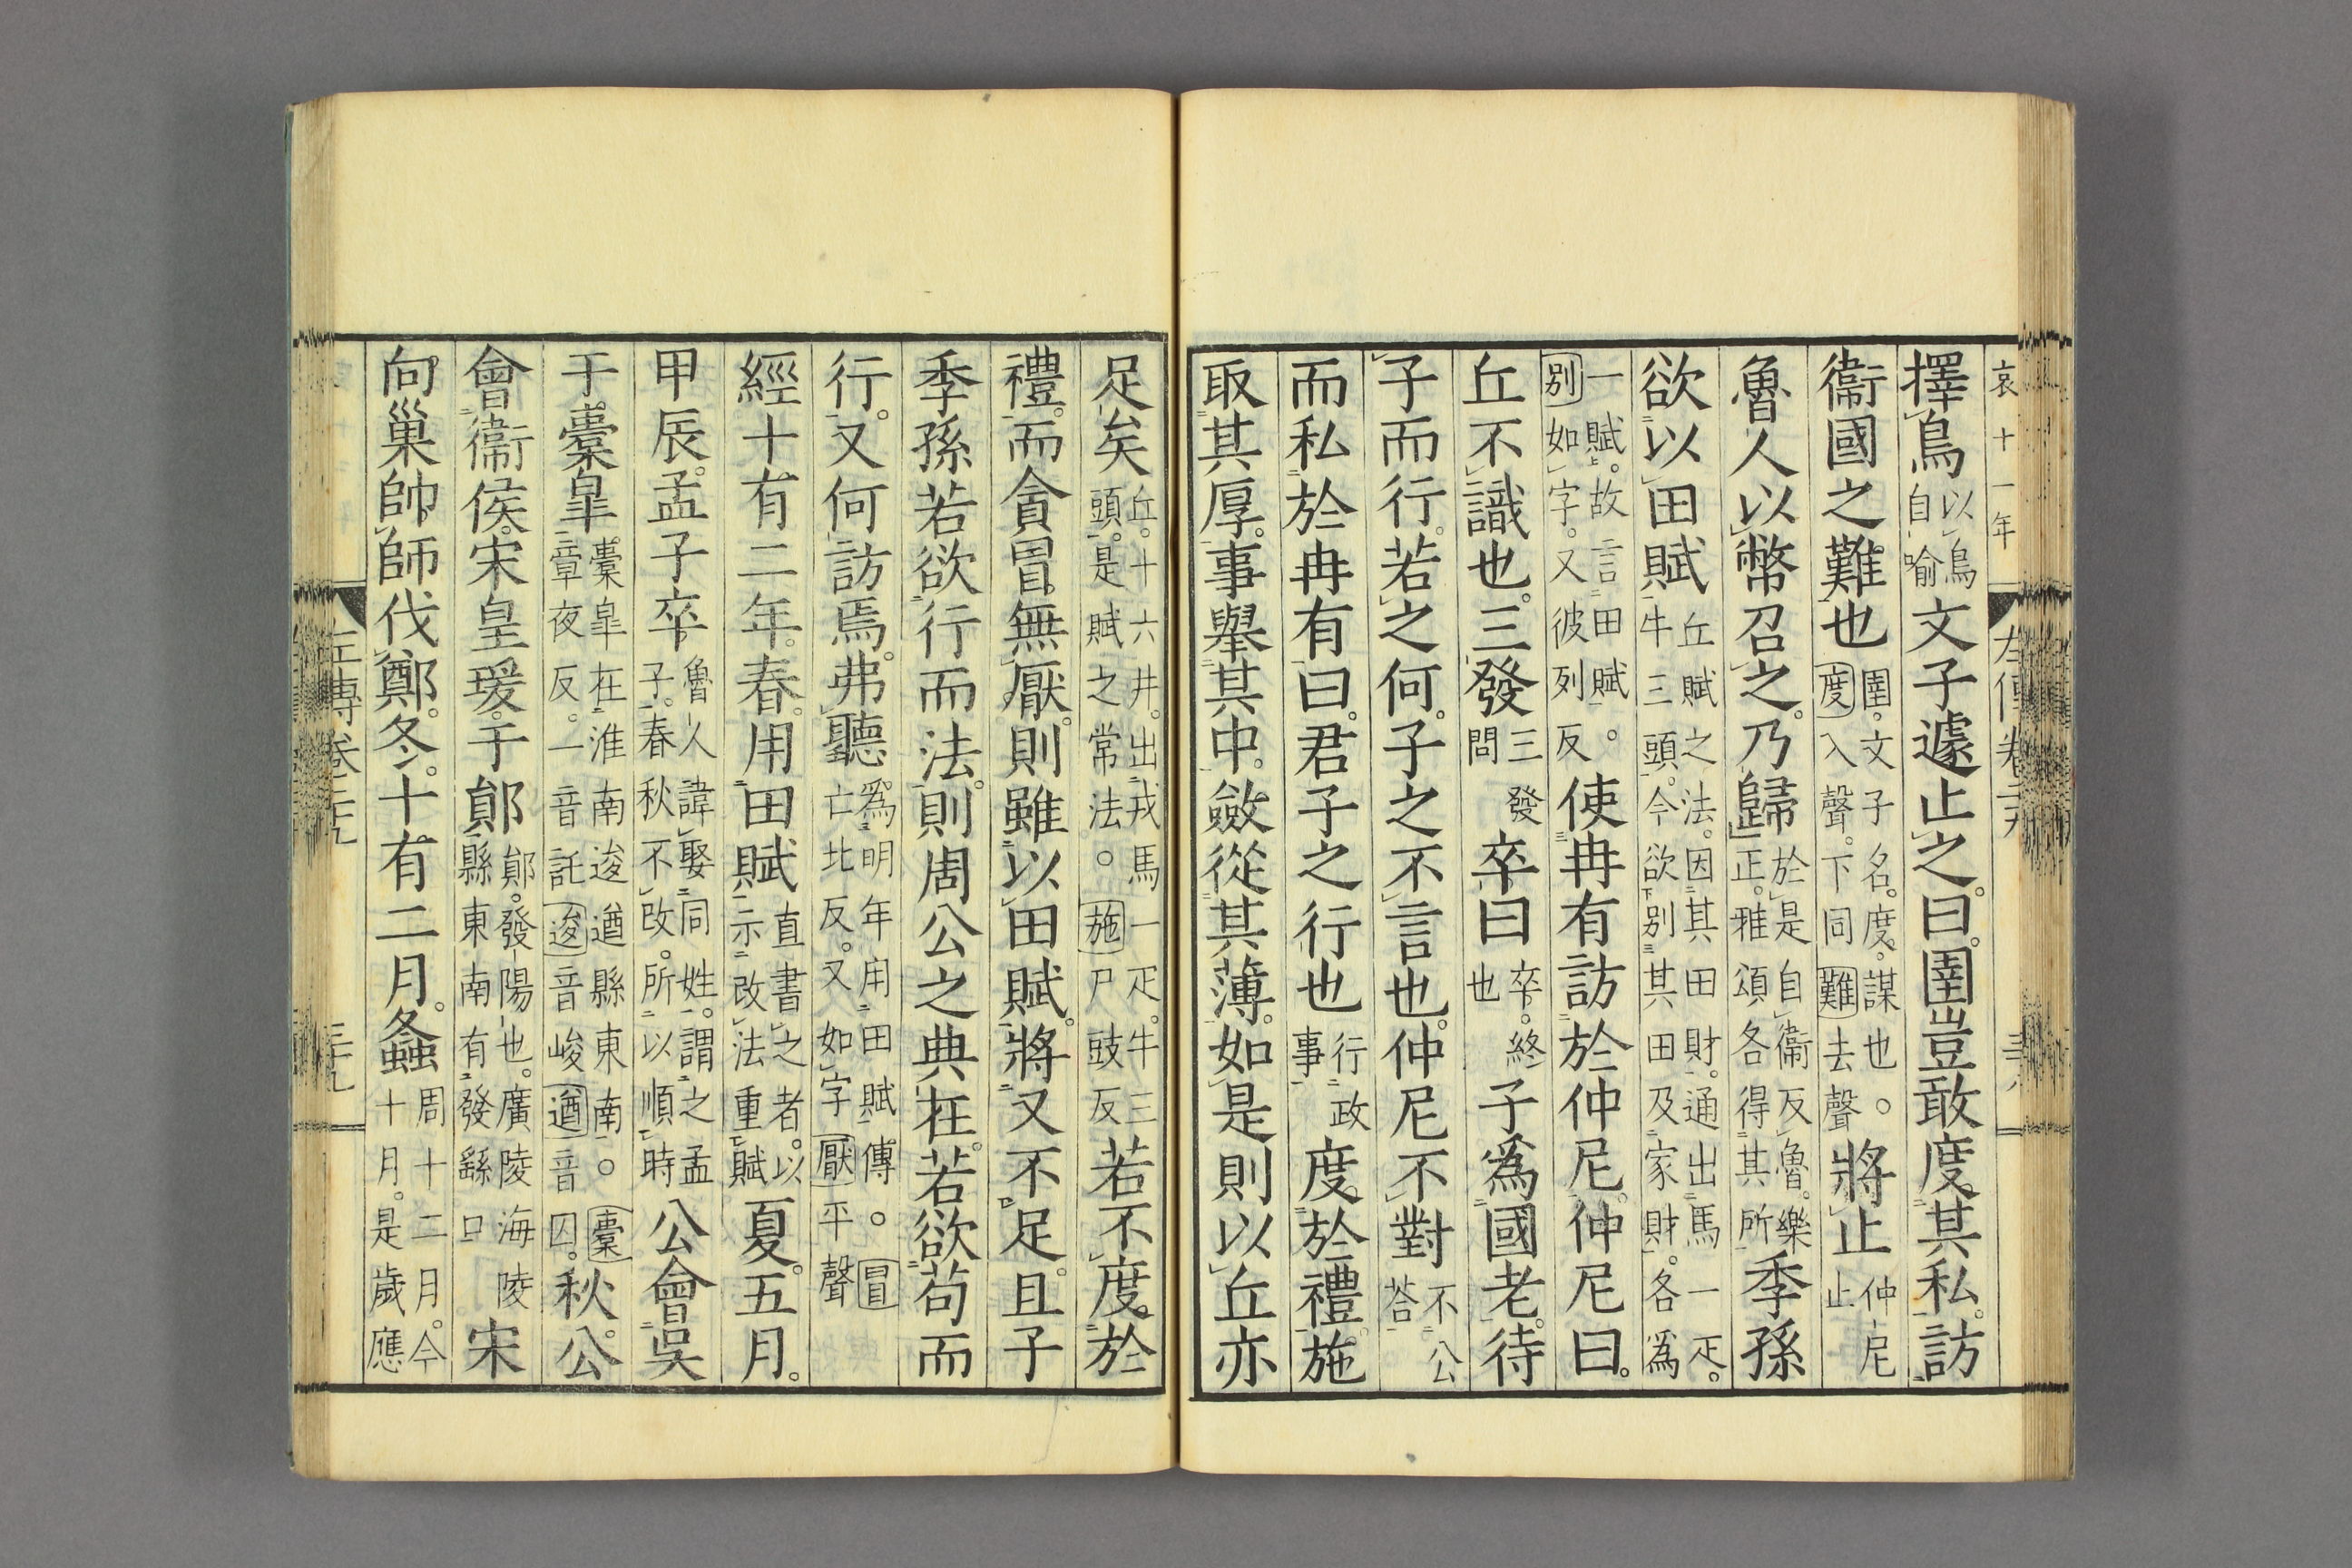 哀十一年
左傳卷二十九
三十八
擇鳥以鳥自喻文子遽止之。曰。圉豈敢度其私。訪
衞國之難也圉。文子名。度。謀也。度入聲。下同難去聲將止仲尼止
魯人以幣召之。乃歸於是自衞反魯。樂正。雅頌各得其所季孫
欲以田賦丘賦之法。因其田財。通出馬一疋。牛三頭。今欲別其田及家財。各爲
一賦。故言田賦。別如字。又彼列反使冉有訪於仲尼。仲尼曰。
丘不識也。三發三發問卒曰卒。終也子爲國老。待
子而行。若之何。子之不言也。仲尼不對不公荅
而私於冉有曰。君子之行也行政事度於禮。施
取其厚。事舉其中。斂從其薄。如是則以丘亦
足矣丘。十六井。出戎馬一疋。牛三頭。是賦之常法。施尸豉反若不度於
禮。而貪冒。無厭。則雖以田賦。將又不足。且子
季孫若欲行而法。則周公之典在。若欲苟而
行。又何訪焉。弗聽。爲明年用田賦傳。冒亡北反。又如字厭平聲
經十有二年。春。用田賦直書之者。以示改法重賦夏。五月。
甲辰。孟子卒魯人諱娶同姓。謂之孟子。春秋不改。所以順時公會吳
于橐皐。橐皐在淮南逡遒縣東南。橐章夜反。一音託逡音峻遒音囚。秋。公
會衞侯。宋皇瑗。于鄖鄖。發陽也。廣陵海陵縣東南有發繇口宋
向巢帥師伐鄭。冬。十有二月。螽周十二月。今十月。是歲應
左傳卷二十九
三十九